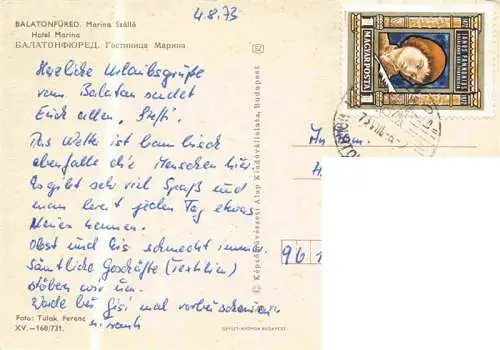 4.8.73
BALATONFÜRED. Marina Szálló
Hotel Marina
БАЛАТОНФЮРЕД. Гостиница Марина
Herzliche Urlaubsgrüße
vom Balaton sendet
Euch allen, "Steffi".
Das Wetter ist
ebenfalls die Menschen hier.
Es gibt sehr viel Spaß und
man lernt jeden Tag etwas
Neues kennen.
Obst und Eis schmeckt immer.
Sämtliche Geschäfte (Textilien)
stöbern wir um.
Werde bei Gisi mal vorbeischauen
Foto: Tulok Ferenc
XV.—168/731.
© Képzőművészeti Alap Kiadóvállalata, Budapest
OFFSET-NYOMDA BUDAPEST
MAGYAR POSTA
JANUS PANNONIUS
1
An
96